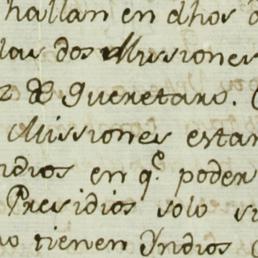 hallan en dhos
las dos Missiones
de Queretaro.
Missiones estan
Indios en q.e poder
Presidios solo
tienen Indios